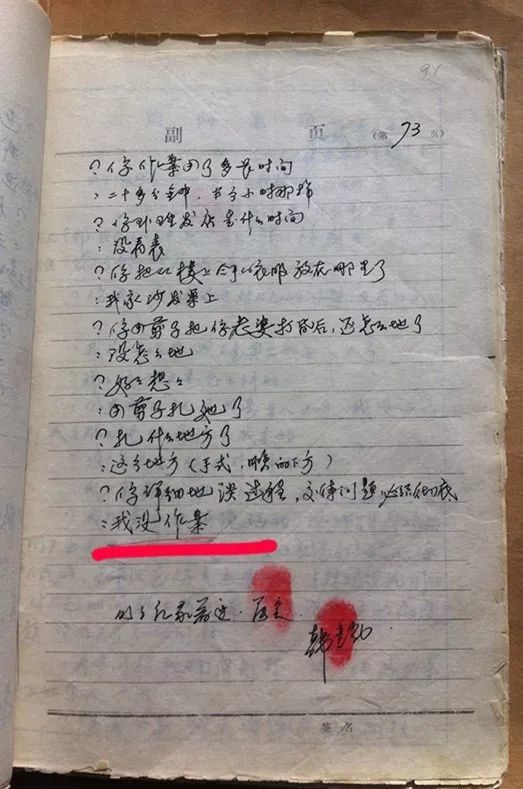 91
副 页 (第 73 页)
? 你作案用了多长时间
: 二十多分钟，半个小时那样
? 你到理发店是什么时间
: 没看表
? 你把从楼上拿的衣服放在哪里了
: 我家沙发罩上
? 你用剪子把你老婆打昏后，还怎么地了
: 没怎么地
? 好好想想
: 用剪子扎她了
? 扎什么地方了
: 这个地方（手式，喉的下方）
? 你详细地谈过程，交待问题必须彻底
: 我没作案
以上记录属
韩
签 名